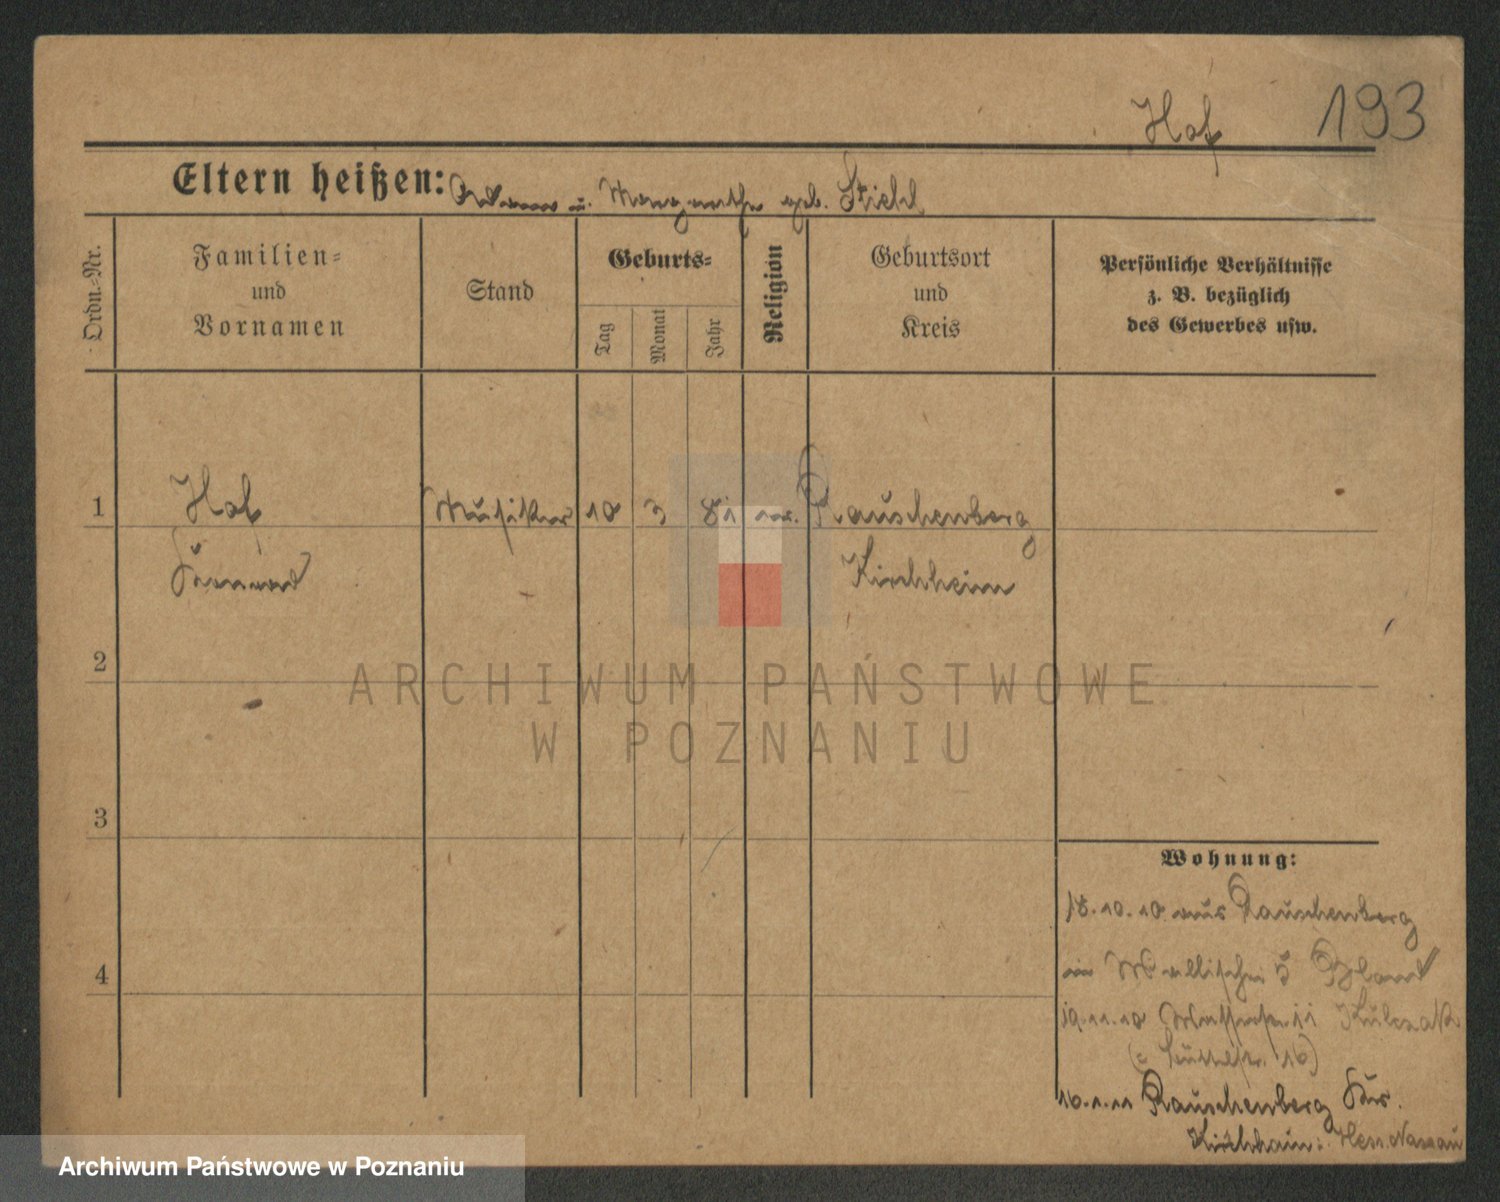 Hof 193
Eltern heißen: Adam u. Margarethe geb. Stiehl
Ordn.-Nr.
Familien-
und
Vornamen
Stand
Geburts-
Tag
Monat
Jahr
Religion
Geburtsort
und
Kreis
Persönliche Verhältnisse
z. B. bezüglich
des Gewerbes usw.
1 Hof Musiker 10 3 81 Rauschenberg
Konrad Kirchheim
2
ARCHIWUM PAŃSTWOWE
W POZNANIU
3
4
Wohnung:
18.10.10 aus Rauschenberg
in 5
19.11.10 11 Kulczak
16)
10.1.11 Rauschenberg Krs.
Kirchhain: Hess. Nassau
Archiwum Państwowe w Poznaniu